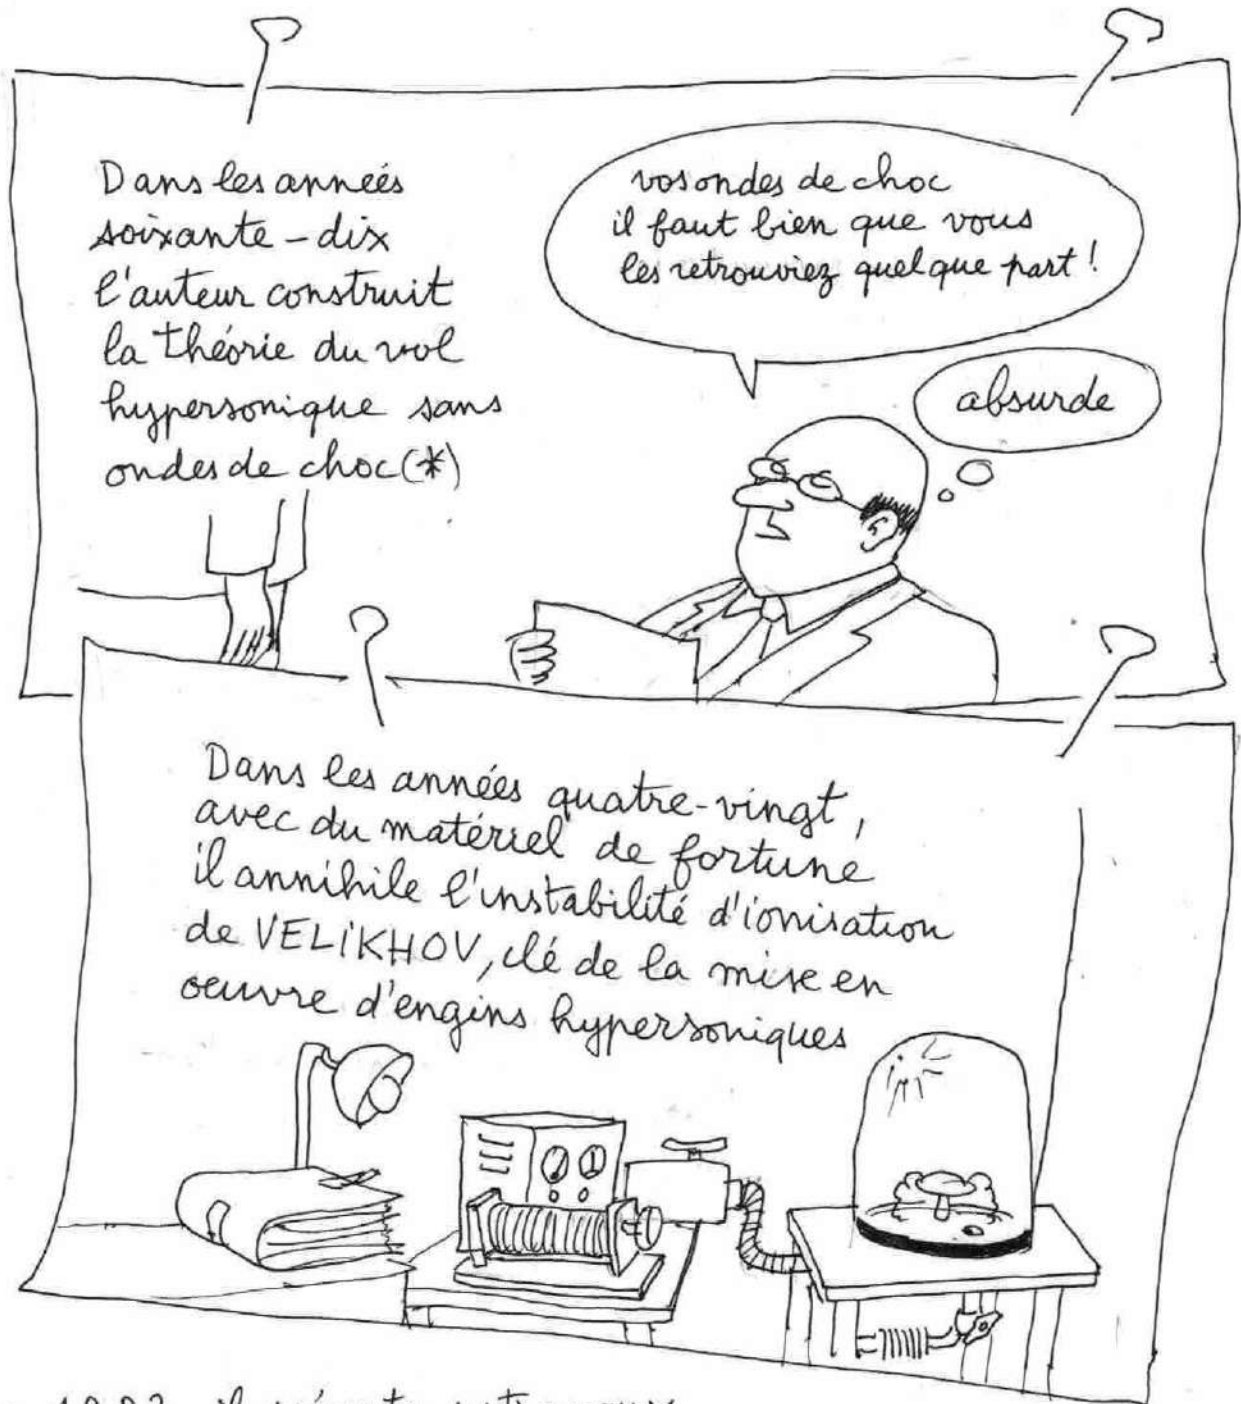 Dans les années
soixante-dix
l'auteur construit
la théorie du vol
hypersonique sans
ondes de choc (*)
vos ondes de choc
il faut bien que vous
les retrouviez quelque part !
absurde
Dans les années quatre-vingt,
avec du matériel de fortune
il annihile l'instabilité d'ionisation
de VELIKHOV, clé de la mise en
oeuvre d'engins hypersoniques